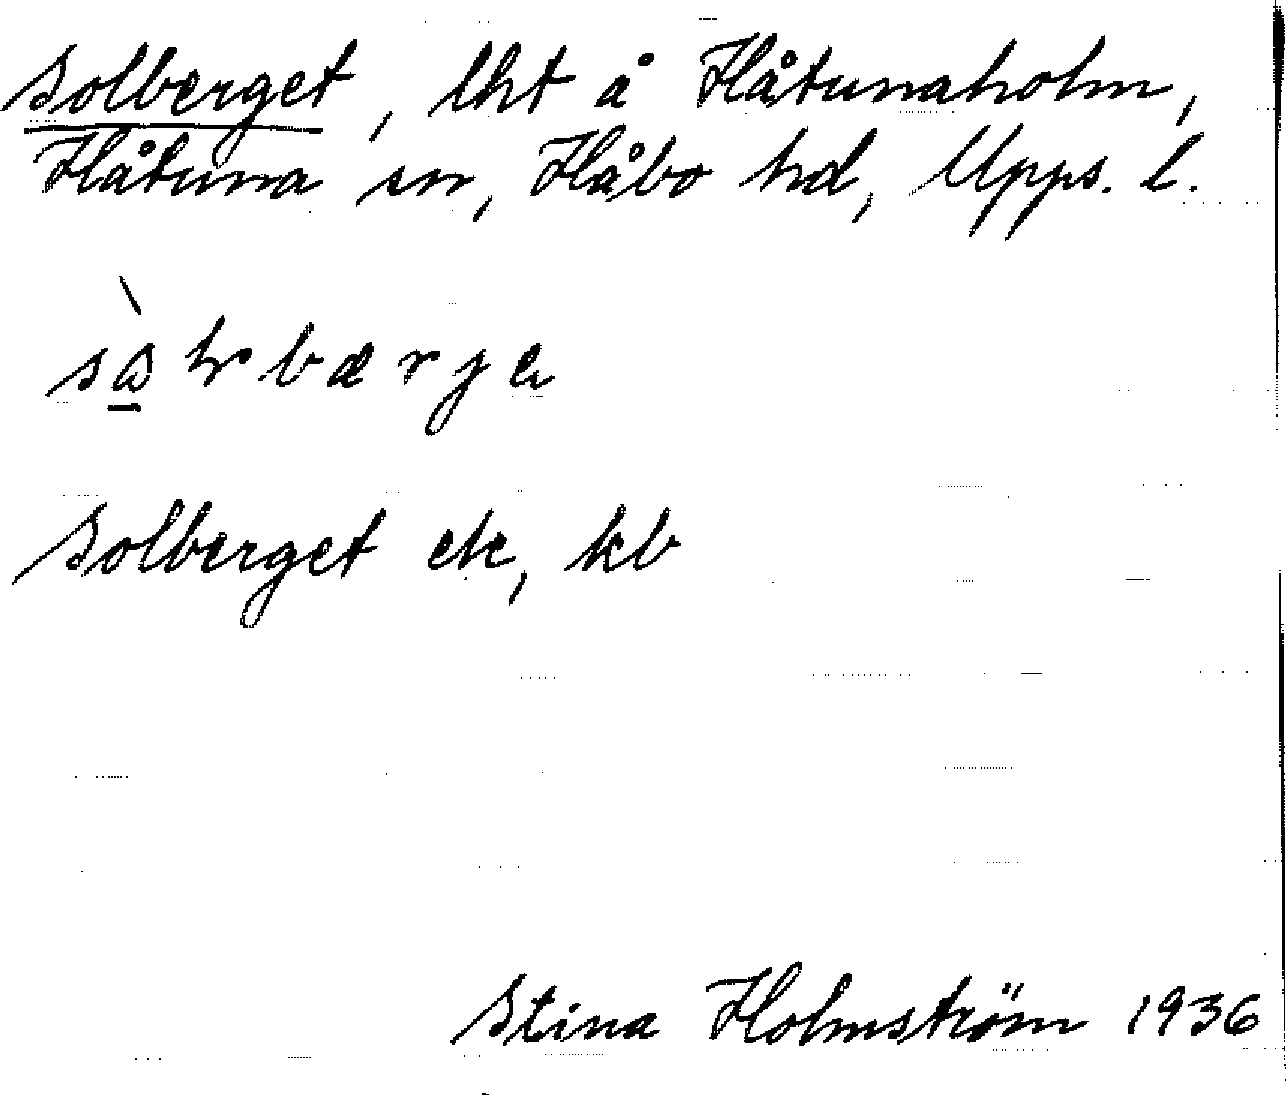 Solberget, lht å Håtunaholm,
Håtuna sn, Håbo hd, Upps. l.
Solberget ek, kb
Stina Holmström 1936